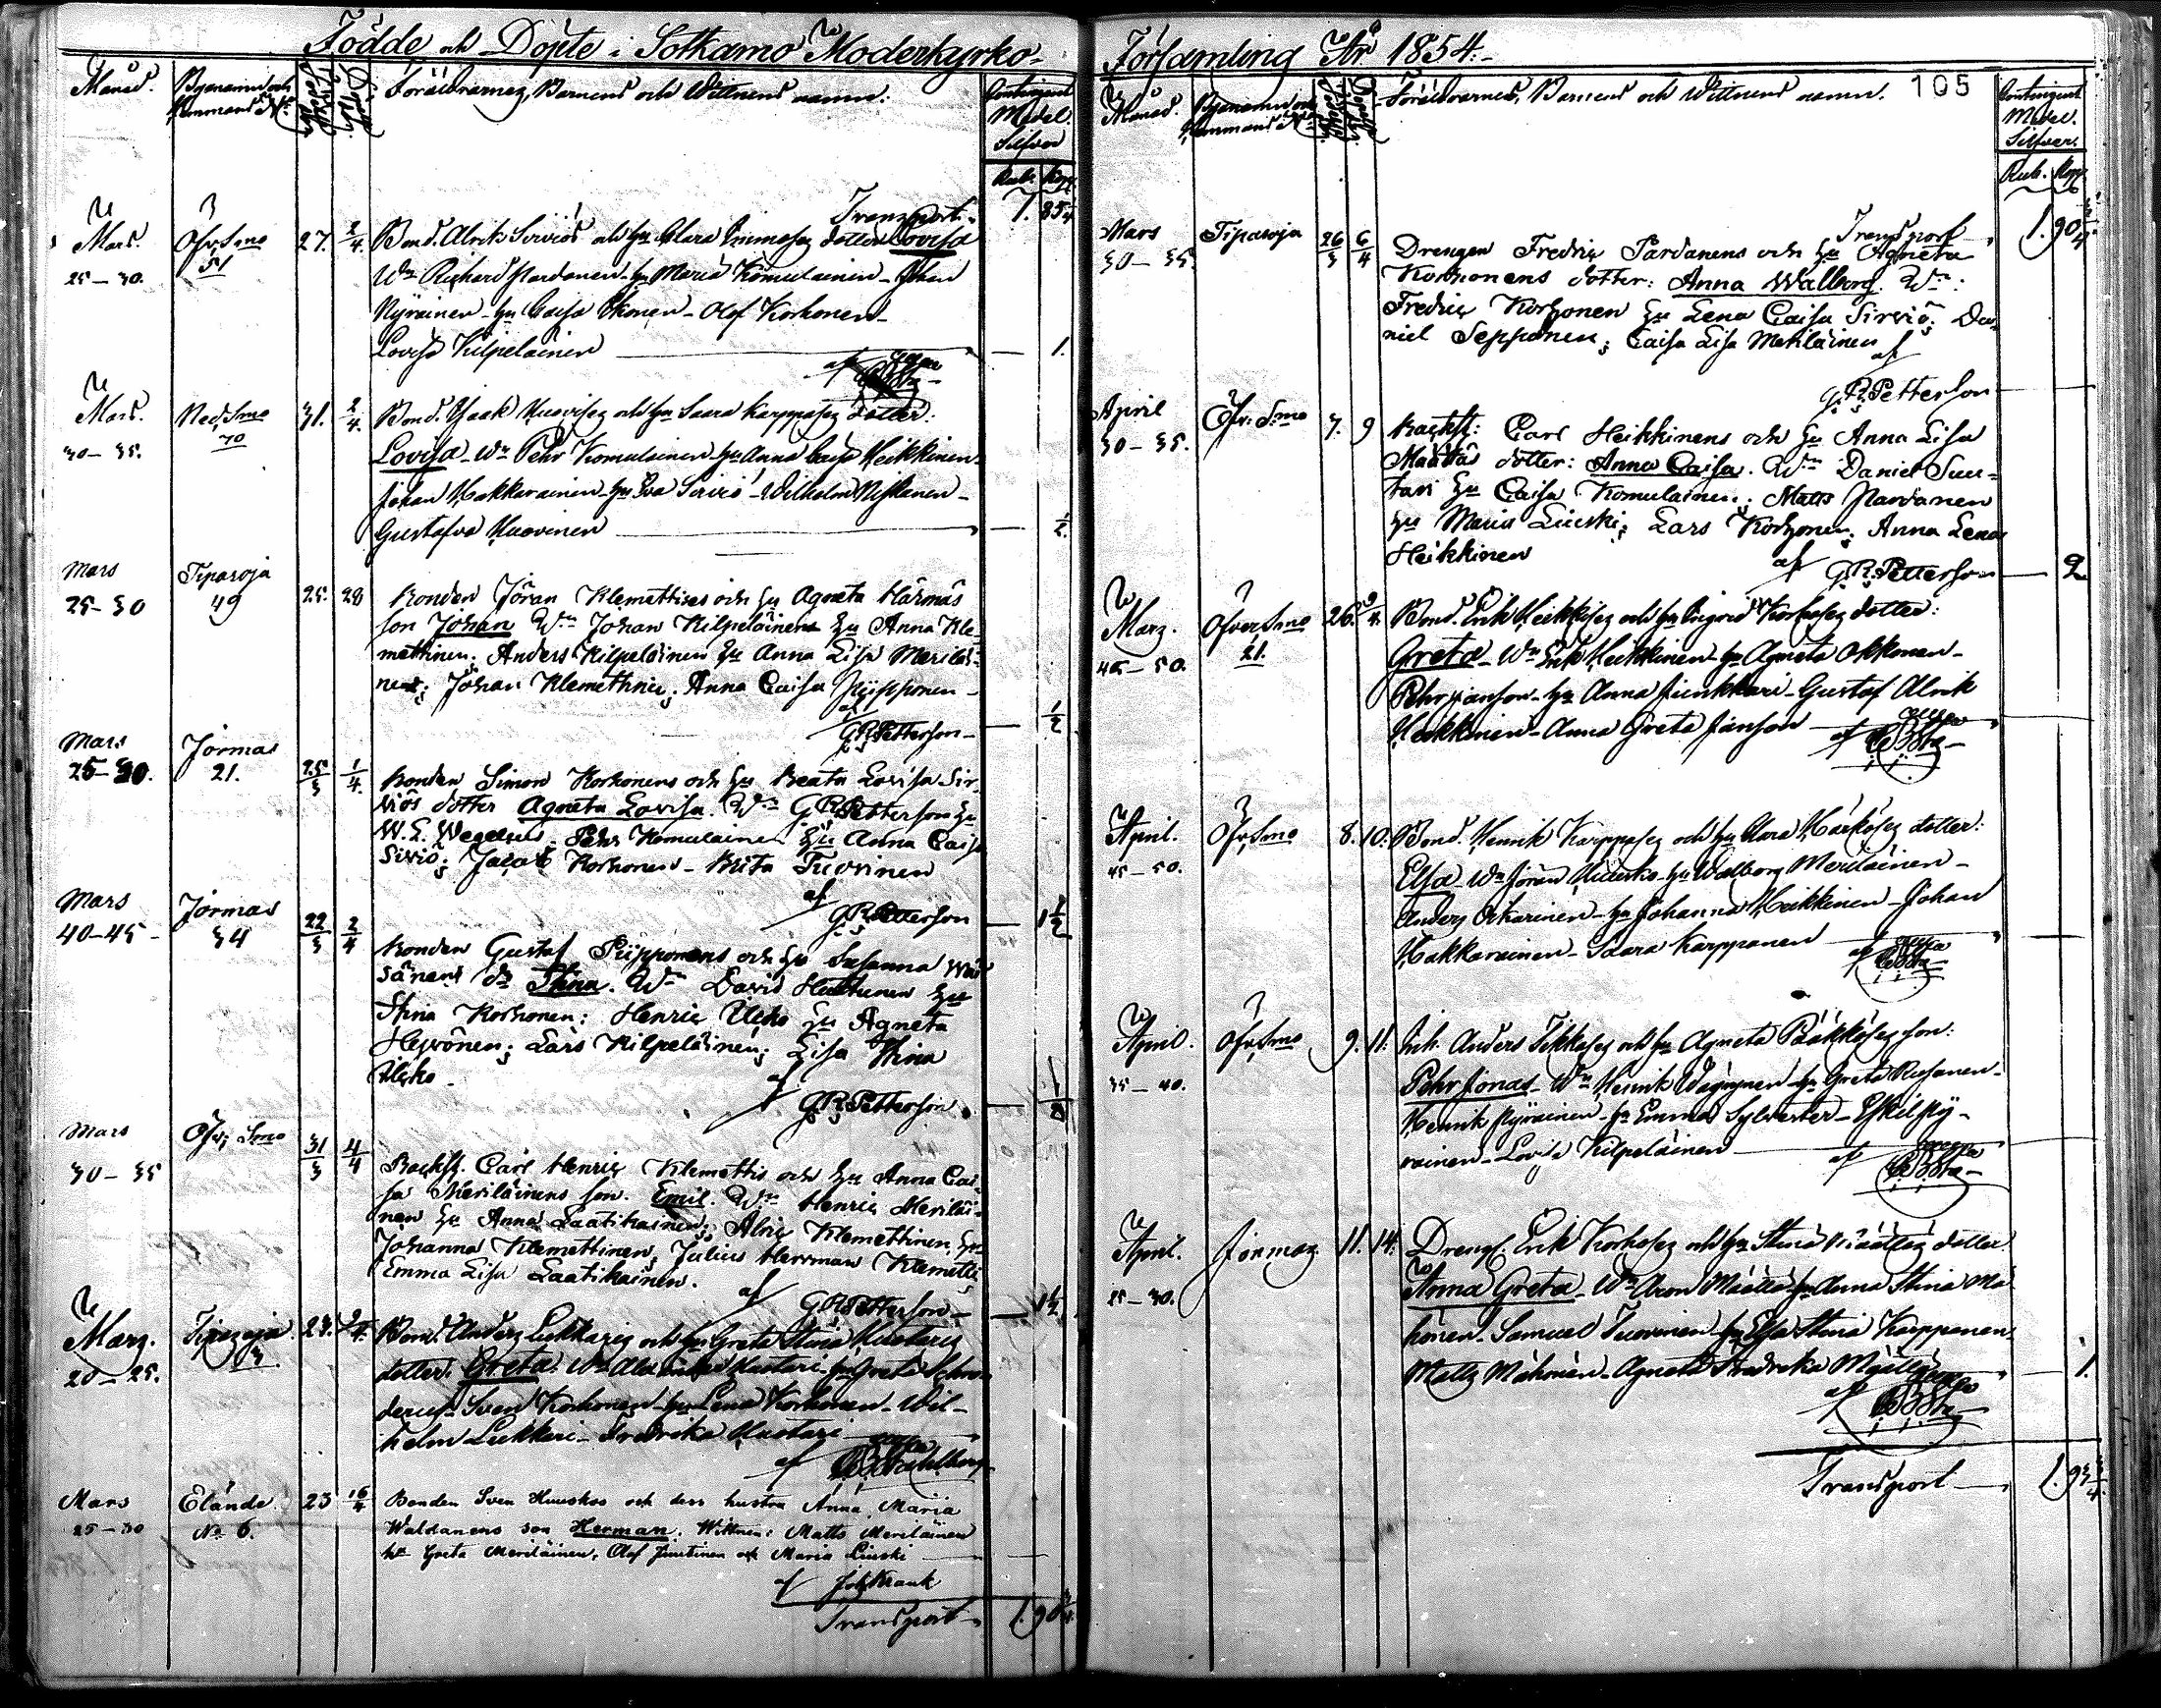 Födde och Döpte i Sotkamo Moderkyrko-
Månad. Byanamn och Hemmans No. Föräldrarnes, Barnens och Wittnens namn: Contingent Medel Silfver
Rub. Kop.
Transport. 1. 85
Mars. Öfv. Smo 27. 2/4. Bond. Alrik Sirviös och hu Clara Immoses dotter Lovisa
25-30. 51 Wn Richard Pardanen - hu Maria Komulainen - Johan
Nyrainen - hu Caisa Ikonen - Olof Korhonen -
Lovisa Kilpeläinen 1.
af
Mars. Ned. Smo 31. 2/4. Bond. Isaak Huovises och hu Saara Karppases dotter:
30-35. 70 Lovisa - Wn Pehr Komulainen - hu Anna Caisa Heikkinen -
Johan Hakkarainen - hu Eva Sirviö - Wilhelm Niskanen -
Gustafva Huovinen 1/2.
Mars Tipasoja 25. 28 Bonden Jöran Klemettises och hu Agneta Härmäs
25-30 49 son Johan Wn Johan Kilpeläinen hu Anna Kle-
mettinen; Anders Kilpeläinen hu Anna Lisa Meriläi-
nen; Johan Klemettinen; Anna Caisa Piipponen -
af G.R. Petterson - 1/2
Mars Jormas
25-30. 21. 25/3 1/4. Bonden Simon Korhonens och hu Beata Lovisa Sir-
viös dotter Agneta Lovisa. Wn G.R. Petterson hu
W.L. Wegelius; Pehr Komulainen hu Anna Caisa
Sirviö; Jacob Korhonen - Brita Tuovinen
af G.R. Petterson 1 1/2
Mars Jormas
40-45 - 34 22/3 2/4 Bonden Gustaf Piipponens och hu Susanna Wäi-
sänens dr Stina. Wn David Huttunen hu
Stina Korhonen; Henric Ülcko hu Agneta
Heinonen; Lars Kilpeläinen; Lisa Stina
Ülcko
af G.R. Petterson
Mars Öfv; Smo
30-35 31/3 4/4 Backst. Carl Henric Klemettis och hu Anna Cai-
sa Meriläinens son. Emil. Wn Henric Meriläi-
nen hu Anna Laatikainen; Alric Klemettinen, hu
Johanna Klemettinen; Julius Herrman Klemetti
Emma Lisa Laatikainen.
af G.R. Petterson 1 1/2.
Mars. Tipasoja 3 Bond. Anders Lukkaris och hu Greta Stina Mustaris
20-25. dotter: Greta. Wn Alexander Mustari - hu Greta
Sven Korhonen - hu Lena Korhonen - Wil-
helm Lukkari - Fredrika Mustari
af
Mars Elände 23 16/4 Bonden Sven Huuskos och dess hustru Anna Maria
25-30 No 6. Waldanens son Herman. Wittnen: Matts Meriläinen
hu Greta Meriläinen, Olof Juntinen och Maria Liuski
af Joh. Krank
Transport 1. 90 3/4
Församling År 1854.
105
Månad. Byanamn och Hemmans No Föräldrarnes, Barnens och Wittnens namn. Contingent Medel. Silfver.
Rub. Kop.
Transport 1. 90 3/4
Mars Tipasoja 26/3 6/4 Drengen Fredric Pardanens och hu Agneta
30-35. Korhonens dotter: Anna Walborg. Wn:
Fredric Korhonen hu Lena Caisa Sirviö; Da-
niel Sepponen; Caisa Lisa Meriläinen
af G.R. Petterson
April Öfv: Smo 7. 9 Backst: Carl Heikkinens och hu Anna Lisa
30-35. Määttäs dotter: Anna Caisa. Wn Daniel Suu-
tari hu Caisa Komulainen; Matts Pardanen
hu Maria Liuski; Lars Korhonen; Anna Lena
Heikkinen
af G.R. Petterson 2
Mars. Öfver Smo 26. 9/4. Bond. Erik Heikkises och hu Ingrid Korhoses dotter:
45-50. 21. Greta - Wn Erik Heikkinen - hu Agneta Okkonen -
Pehr Janson - hu Anna Junkkari - Gustaf Alrik
Heikkinen - Anna Greta Janson
af
April. Öfv. Smo 8. 10. Bond. Henrik Karppases och hu Clara Härköses dotter:
45-50. Elsa - Wn Jöran Huusko - hu Walborg Meriläinen -
Anders Oskarinen - hu Johanna Heikkinen - Johan
Hakkarainen - Saara Karppanen
af
April. Öfv. Smo 9. 11. Inh. Anders Tikkases och hu Agneta Pääkköses son:
35-40. Pehr Jonas - Wn Henrik Väyrynen - hu Greta Rusanen -
Henrik Nyrainen - hu Emma Sylvester - Eskil Ny-
rainen - Lovisa Kilpeläinen
af
April. Jormas 11. 14. Drengs. Erik Korhoses och hu Stina Määttäs dotter:
25-30. Anna Greta - Wn Aron Määttä - hu Anna Stina Mä-
hönen - Samuel Tuovinen - hu Elsa Stina Karppanen
Matts Mähönen - Agneta Fredrika Määttä 1.
af
Transport 1. 93 3/4.